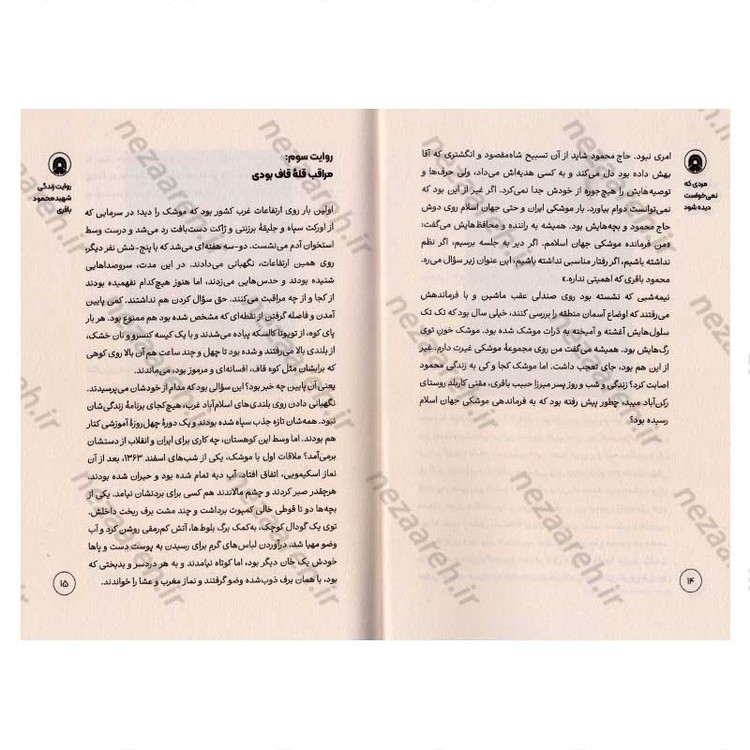 مردی که
نمی‌خواست
دیده شود
امری نبود. حاج محمود شاید از آن تسبیح شاه‌مقصود و انگشتری که آقا
بهش داده بود دل می‌کند و به کسی هدیه‌اش می‌داد، ولی حرف‌ها و
توصیه‌هایش را هیچ‌جوره از خودش جدا نمی‌کرد. اگر غیر از این بود که
نمی‌توانست دوام بیاورد. بار موشکی ایران و حتی جهان اسلام روی دوش
حاج محمود و بچه‌هایش بود. همیشه به راننده و محافظ‌هایش می‌گفت:
«من فرمانده موشکی جهان اسلامم. اگر دیر به جلسه برسیم، اگر نظم
نداشته باشیم، اگر رفتار مناسبی نداشته باشیم، این عنوان زیر سؤال می‌ره.
محمود باقری که اهمیتی نداره.»
نیمه‌شبی که نشسته بود روی صندلی عقب ماشین و با فرماندهش
می‌رفتند که اوضاع آسمان منطقه را بررسی کنند، خیلی سال بود که تک تک
سلول‌هایش آغشته و آمیخته به ذرات موشک شده بود. موشک خونِ توی
رگ‌هایش بود. همیشه می‌گفت من روی مجموعهٔ موشکی غیرت دارم. غیر
از این هم بود، جای تعجب داشت. اما موشک کجا و کی به زندگی محمود
اصابت کرد؟ زندگی و شب و روز پسر میرزا حبیب باقری، مقنی کاربلد روستای
رکن‌آباد میبد، چطور پیش رفته بود که به فرماندهی موشکی جهان اسلام
رسیده بود؟
۱۴
روایت زندگی
شهید محمود
باقری
روایت سوم:
مراقب قلهٔ قاف بودی
اولین بار روی ارتفاعات غرب کشور بود که موشک را دید؛ در سرمایی که
از اورکت سپاه و جلیقهٔ برزنتی و ژاکت دست‌بافت رد می‌شد و درست وسط
استخوان آدم می‌نشست. دو-سه هفته‌ای می‌شد که با پنج-شش نفر دیگر،
روی همین ارتفاعات، نگهبانی می‌دادند. در این مدت، سروصداهایی
شنیده بودند و حدس‌هایی می‌زدند، اما هنوز هیچ‌کدام نفهمیده بودند
از کجا و از چه مراقبت می‌کنند. حق سؤال کردن هم نداشتند. کمی پایین
آمدن و فاصله گرفتن از نقطه‌ای که مشخص شده بود هم ممنوع بود. هر بار
پای کوه، از تویوتا کالسکه پیاده می‌شدند و با یک کیسه کنسرو و نان خشک،
از بلندی بالا می‌رفتند و شده بود تا چهل و چند ساعت هم آن بالا روی کوهی
که برایشان مثل کوه قاف، افسانه‌ای و مرموز بود، می‌ماندند.
یعنی آن پایین چه خبر بود؟ این سؤالی بود که مدام از خودشان می‌پرسیدند.
نگهبانی دادن روی بلندی‌های اسلام‌آباد غرب، هیچ‌کجای برنامهٔ زندگی‌شان
نبود. همه‌شان تازه جذب سپاه شده بودند و یک دورهٔ چهل‌روزهٔ آموزشی کنار
هم بودند. اما وسط این کوهستان، چه کاری برای ایران و انقلاب از دستشان
برمی‌آمد؟ ملاقات اول با موشک، یکی از شب‌های اسفند ۱۳۶۳، بعد از آن
نماز اسکیمویی، اتفاق افتاد. آب دبه تمام شده بود و حیران شده بودند.
هرچقدر صبر کردند و چشم مالاندند هم کسی برای بردنشان نیامد. یکی از
بچه‌ها دو تا قوطی خالی کمپوت برداشت و چند مشت برف ریخت داخلش.
توی یک گودال کوچک، به‌کمک برگ بلوط‌ها، آتش کم‌رمقی روشن کرد و آب
وضو مهیا شد. درآوردن لباس‌های گرم برای رسیدن به پوست دست و پاها
خودش یک خان دیگر بود، اما کوتاه نیامدند و به هر دردسر و بدبختی که
بود، با همان برف ذوب‌شده وضو گرفتند و نماز مغرب و عشا را خواندند.
۱۵
nezaareh.ir